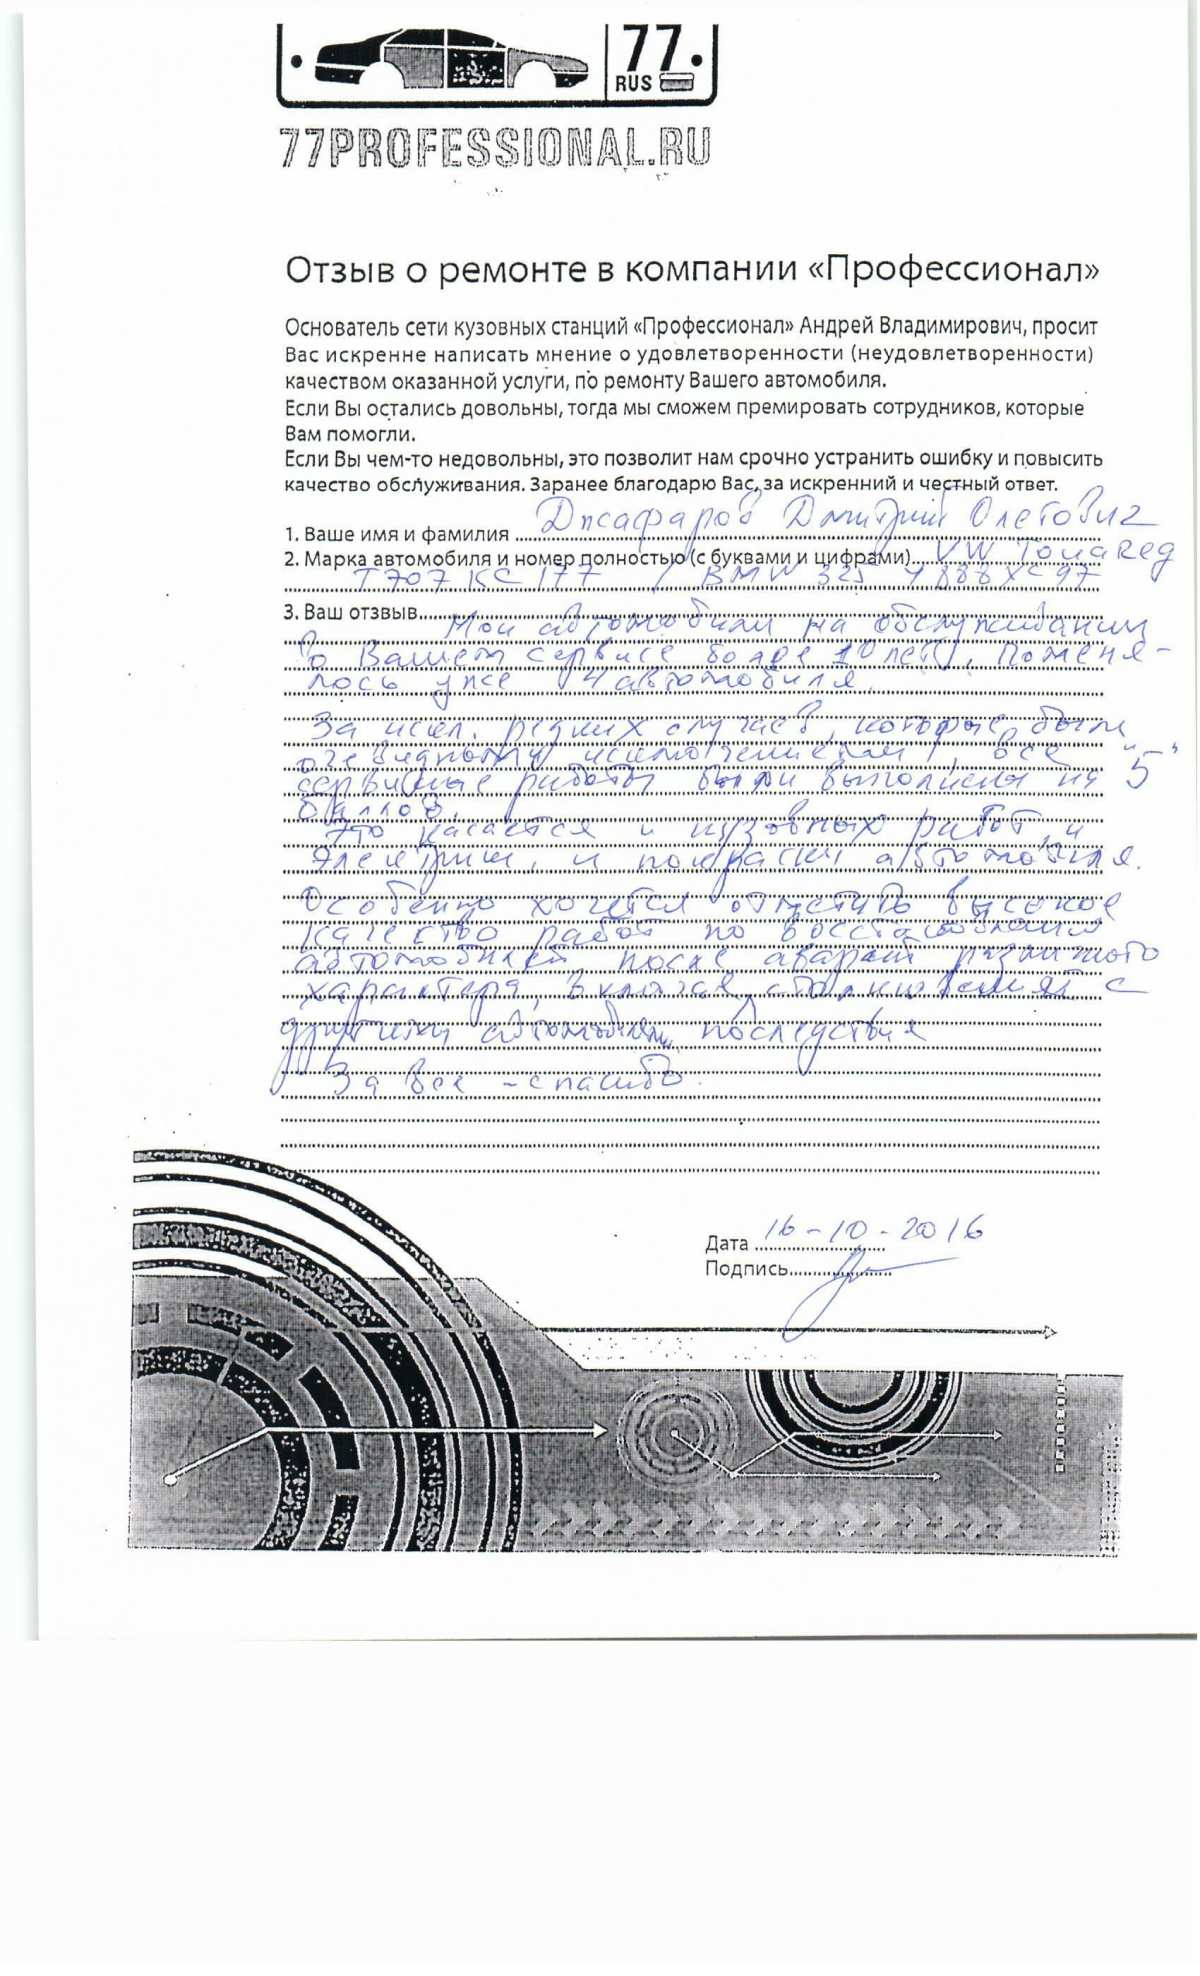 77
RUS
77PROFESSIONAL.RU
Отзыв о ремонте в компании «Профессионал»
Основатель сети кузовных станций «Профессионал» Андрей Владимирович, просит
Вас искренне написать мнение о удовлетворенности (неудовлетворенности)
качеством оказанной услуги, по ремонту Вашего автомобиля.
Если Вы остались довольны, тогда мы сможем премировать сотрудников, которые
Вам помогли.
Если Вы чем-то недовольны, это позволит нам срочно устранить ошибку и повысить
качество обслуживания. Заранее благодарю Вас, за искренний и честный ответ.
1. Ваше имя и фамилия Джафаров Дмитрий Олегович
2. Марка автомобиля и номер полностью (с буквами и цифрами) VW Touareg
Т707КС177 / BMW 325 У888ХС97
3. Ваш отзвыв
Мои автомобили на обслуживании
в Вашем сервисе более 10 лет, поменя-
лось уже 4 автомобиля.
За искл. редких случаев, которые были
очевидному исключением, все
сервисные работы были выполнены на "5"
баллов.
Это касается и кузовных работ, и
электрики, и покраски автомобиля.
Особенно хочется отметить высокое
качество работ по восстановлению
автомобилей после аварий различного
характера, включая столкновения с
другими автомобилями последствия
За все - спасибо.
Дата 16-10-2016
Подпись